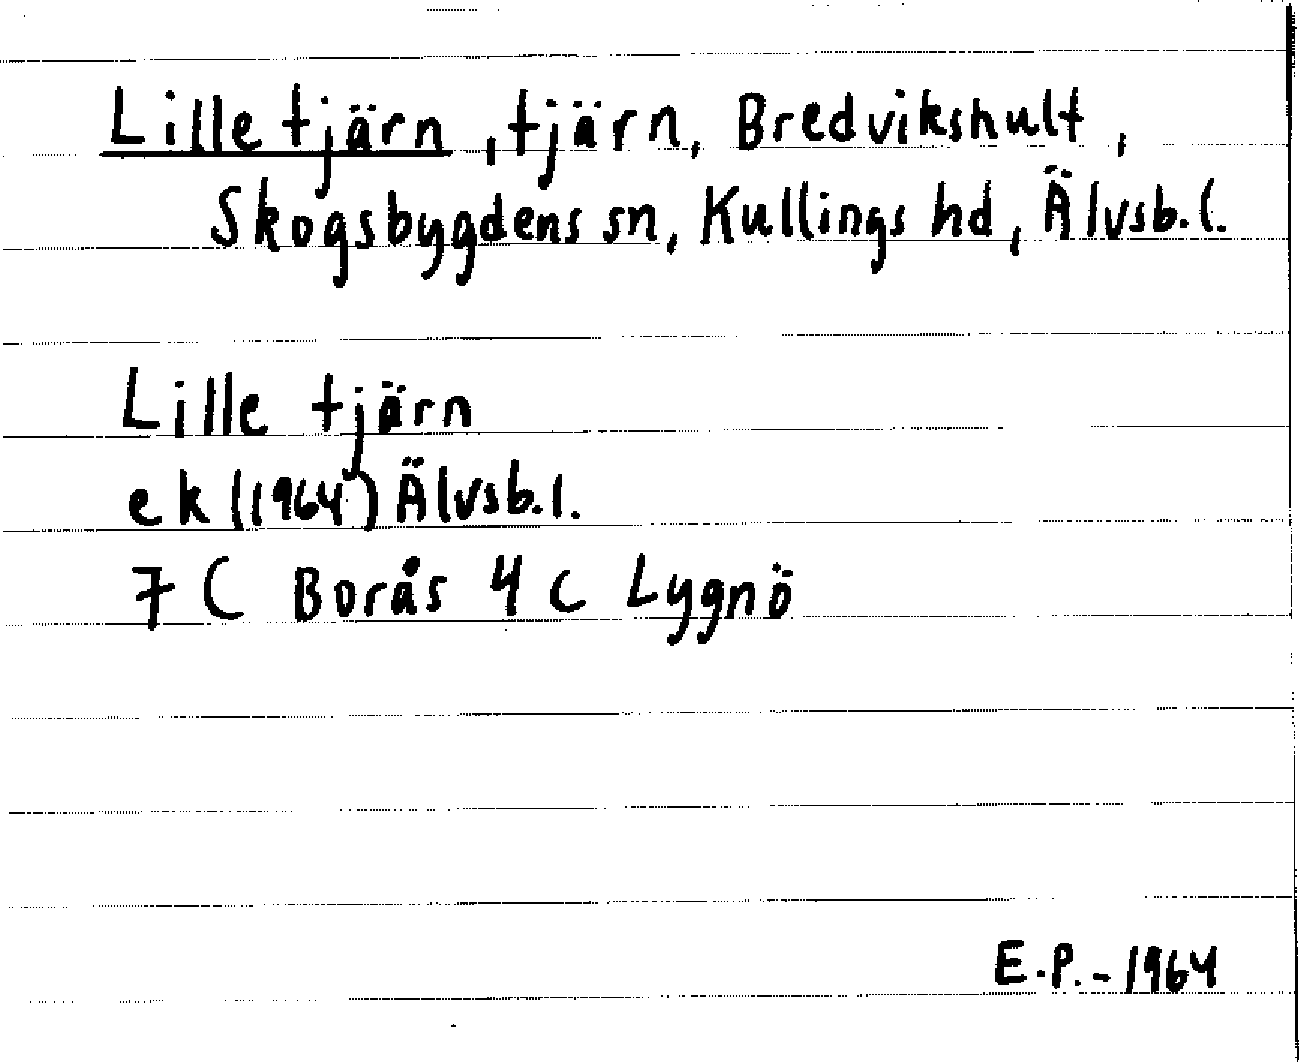 Lille tjärn, tjärn, Bredvikshult,
Skogsbygdens sn, Kullings hd, Älvsb.l.
Lille tjärn
ek (1964) Älvsb.l.
7 C Borås 4 c Lygnö
E.P.-1964